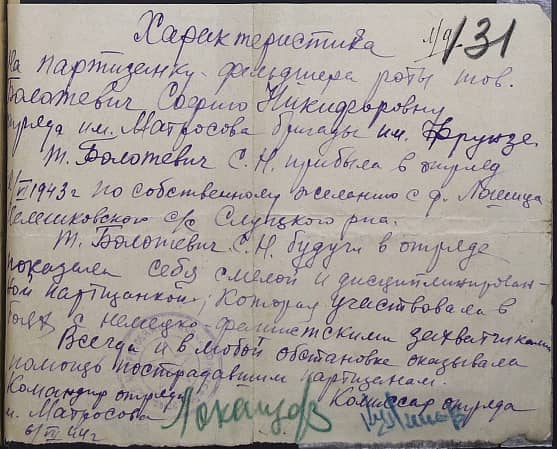 Характеристика
131
На партизанку-фельдшера роты тов.
Болотевич Софию Никифоровну
отряда им. Матросова бригады им. Фрунзе
Т. Болотевич С.Н. прибыла в отряд
1943 г по собственному желанию с д.
с/с Слуцкого р-на.
Т. Болотевич С.Н. будучи в отряде
показала себя смелой и дисциплинирован-
ной партизанкой, которая участвовала в
боях с немецко-фашистскими захватчиками
Всегда и в любой обстановке оказывала
помощь пострадавшим партизанам.
Командир отряда
Комиссар отряда
и. Матросова
44 г